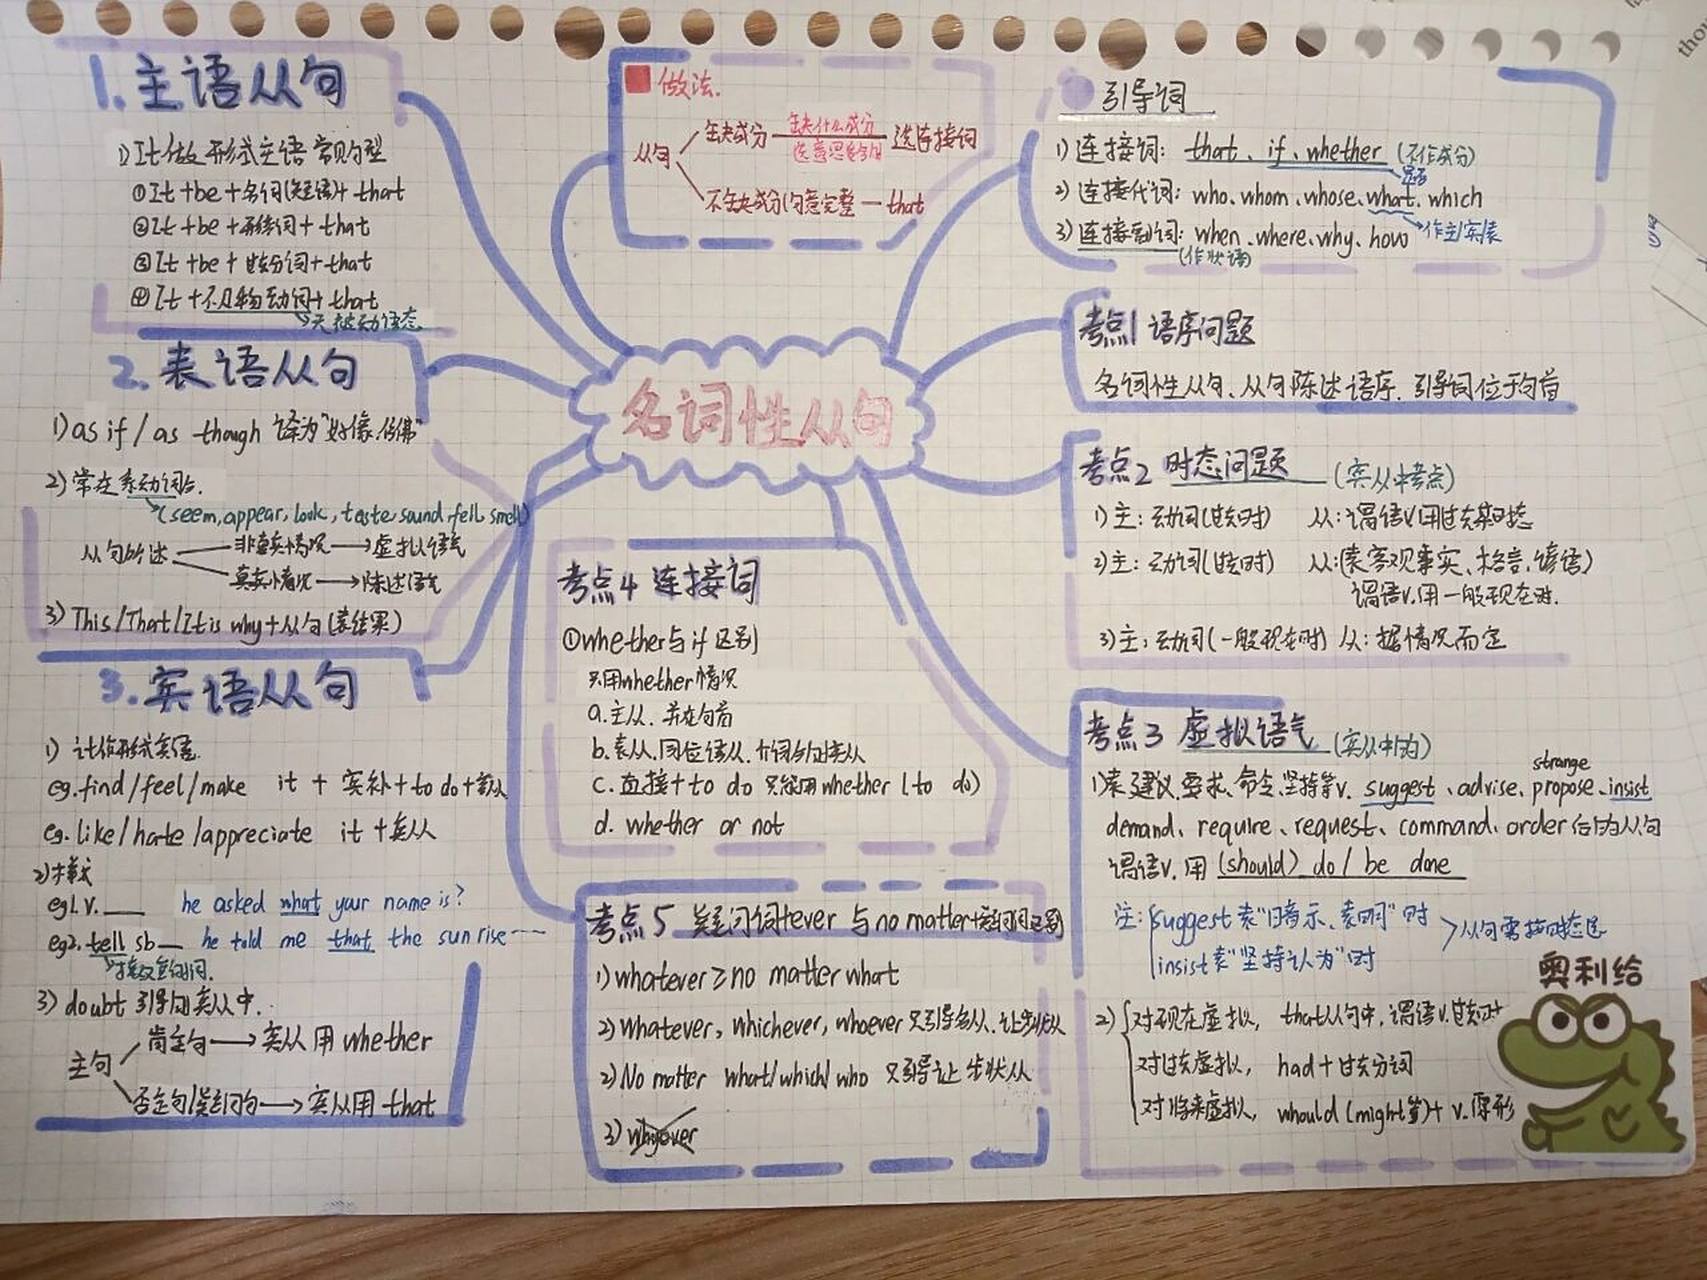 名词性从句
1. 主语从句
1) It做形式主语常见句型
①It+be+名词(短语)+that
②It+be+形容词+that
③It+be+过去分词+that
④It+不及物动词+that
→无被动语态
2. 表语从句
1) as if / as though 译为"好像,仿佛"
2) 常在系动词后.
(seem, appear, look, taste, sound, fell, smell)
从句所述
非真实情况→虚拟语气
真实情况→陈述语气
3) This/That/It is why+从句(表结果)
3. 宾语从句
1) it作形式宾语.
eg. find/feel/make it + 宾补+to do+宾从
eg. like/hate/appreciate it +宾从
2) 模式
eg1. v.___ he asked what your name is?
eg2. tell sb__ he told me that the sun rise……
3) doubt 引导的宾从中.
主句
肯定句→宾从用 whether
否定句/疑问句→宾从用 that
做法.
从句
缺成分 缺什么成分 选连接词
不缺成分,句意完整—that
引导词
1) 连接词: that、if、whether (不作成分)
是否
2) 连接代词: who、whom、whose、what、which
→作主宾表
3) 连接副词: when、where、why、how
(作状语)
考点1 语序问题
名词性从句、从句陈述语序. 引导词位于句首
考点2 时态问题 (宾从中考点)
1) 主: 动词(过去时) 从: 谓语v.用过去某时态
2) 主: 动词(过去时) 从: (表客观事实、格言、谚语)
谓语v.用一般现在时.
3) 主: 动词(一般现在时) 从: 据情况而定
考点3 虚拟语气 (宾从中的)
strange
1) 表建议、要求、命令、坚持等v. suggest、advise、propose、insist
demand、require、request、command、order后的从句
谓语v. 用 (should) do / be done
注: suggest 表"暗示、表明"时
insist表"坚持认为"时
>从句需按时态走
2) 对现在虚拟, that从句中, 谓语v.过去时
对过去虚拟, had+过去分词
对将来虚拟, whould (might等)+ v.原形
奥利给
考点4 连接词
①whether与if区别
只用whether情况
a. 主从. 并在句首
b. 表从. 同位语从. 介词后宾从
c. 直接+ to do 只能用whether (to do)
d. whether or not
考点5 疑问词+ever 与no matter+疑问词区别
1) whatever≥no matter what
2) whatever, whichever, whoever 只引导名从、让步状从
2) No matter what/which/who 只引导让步状从
3) whyever